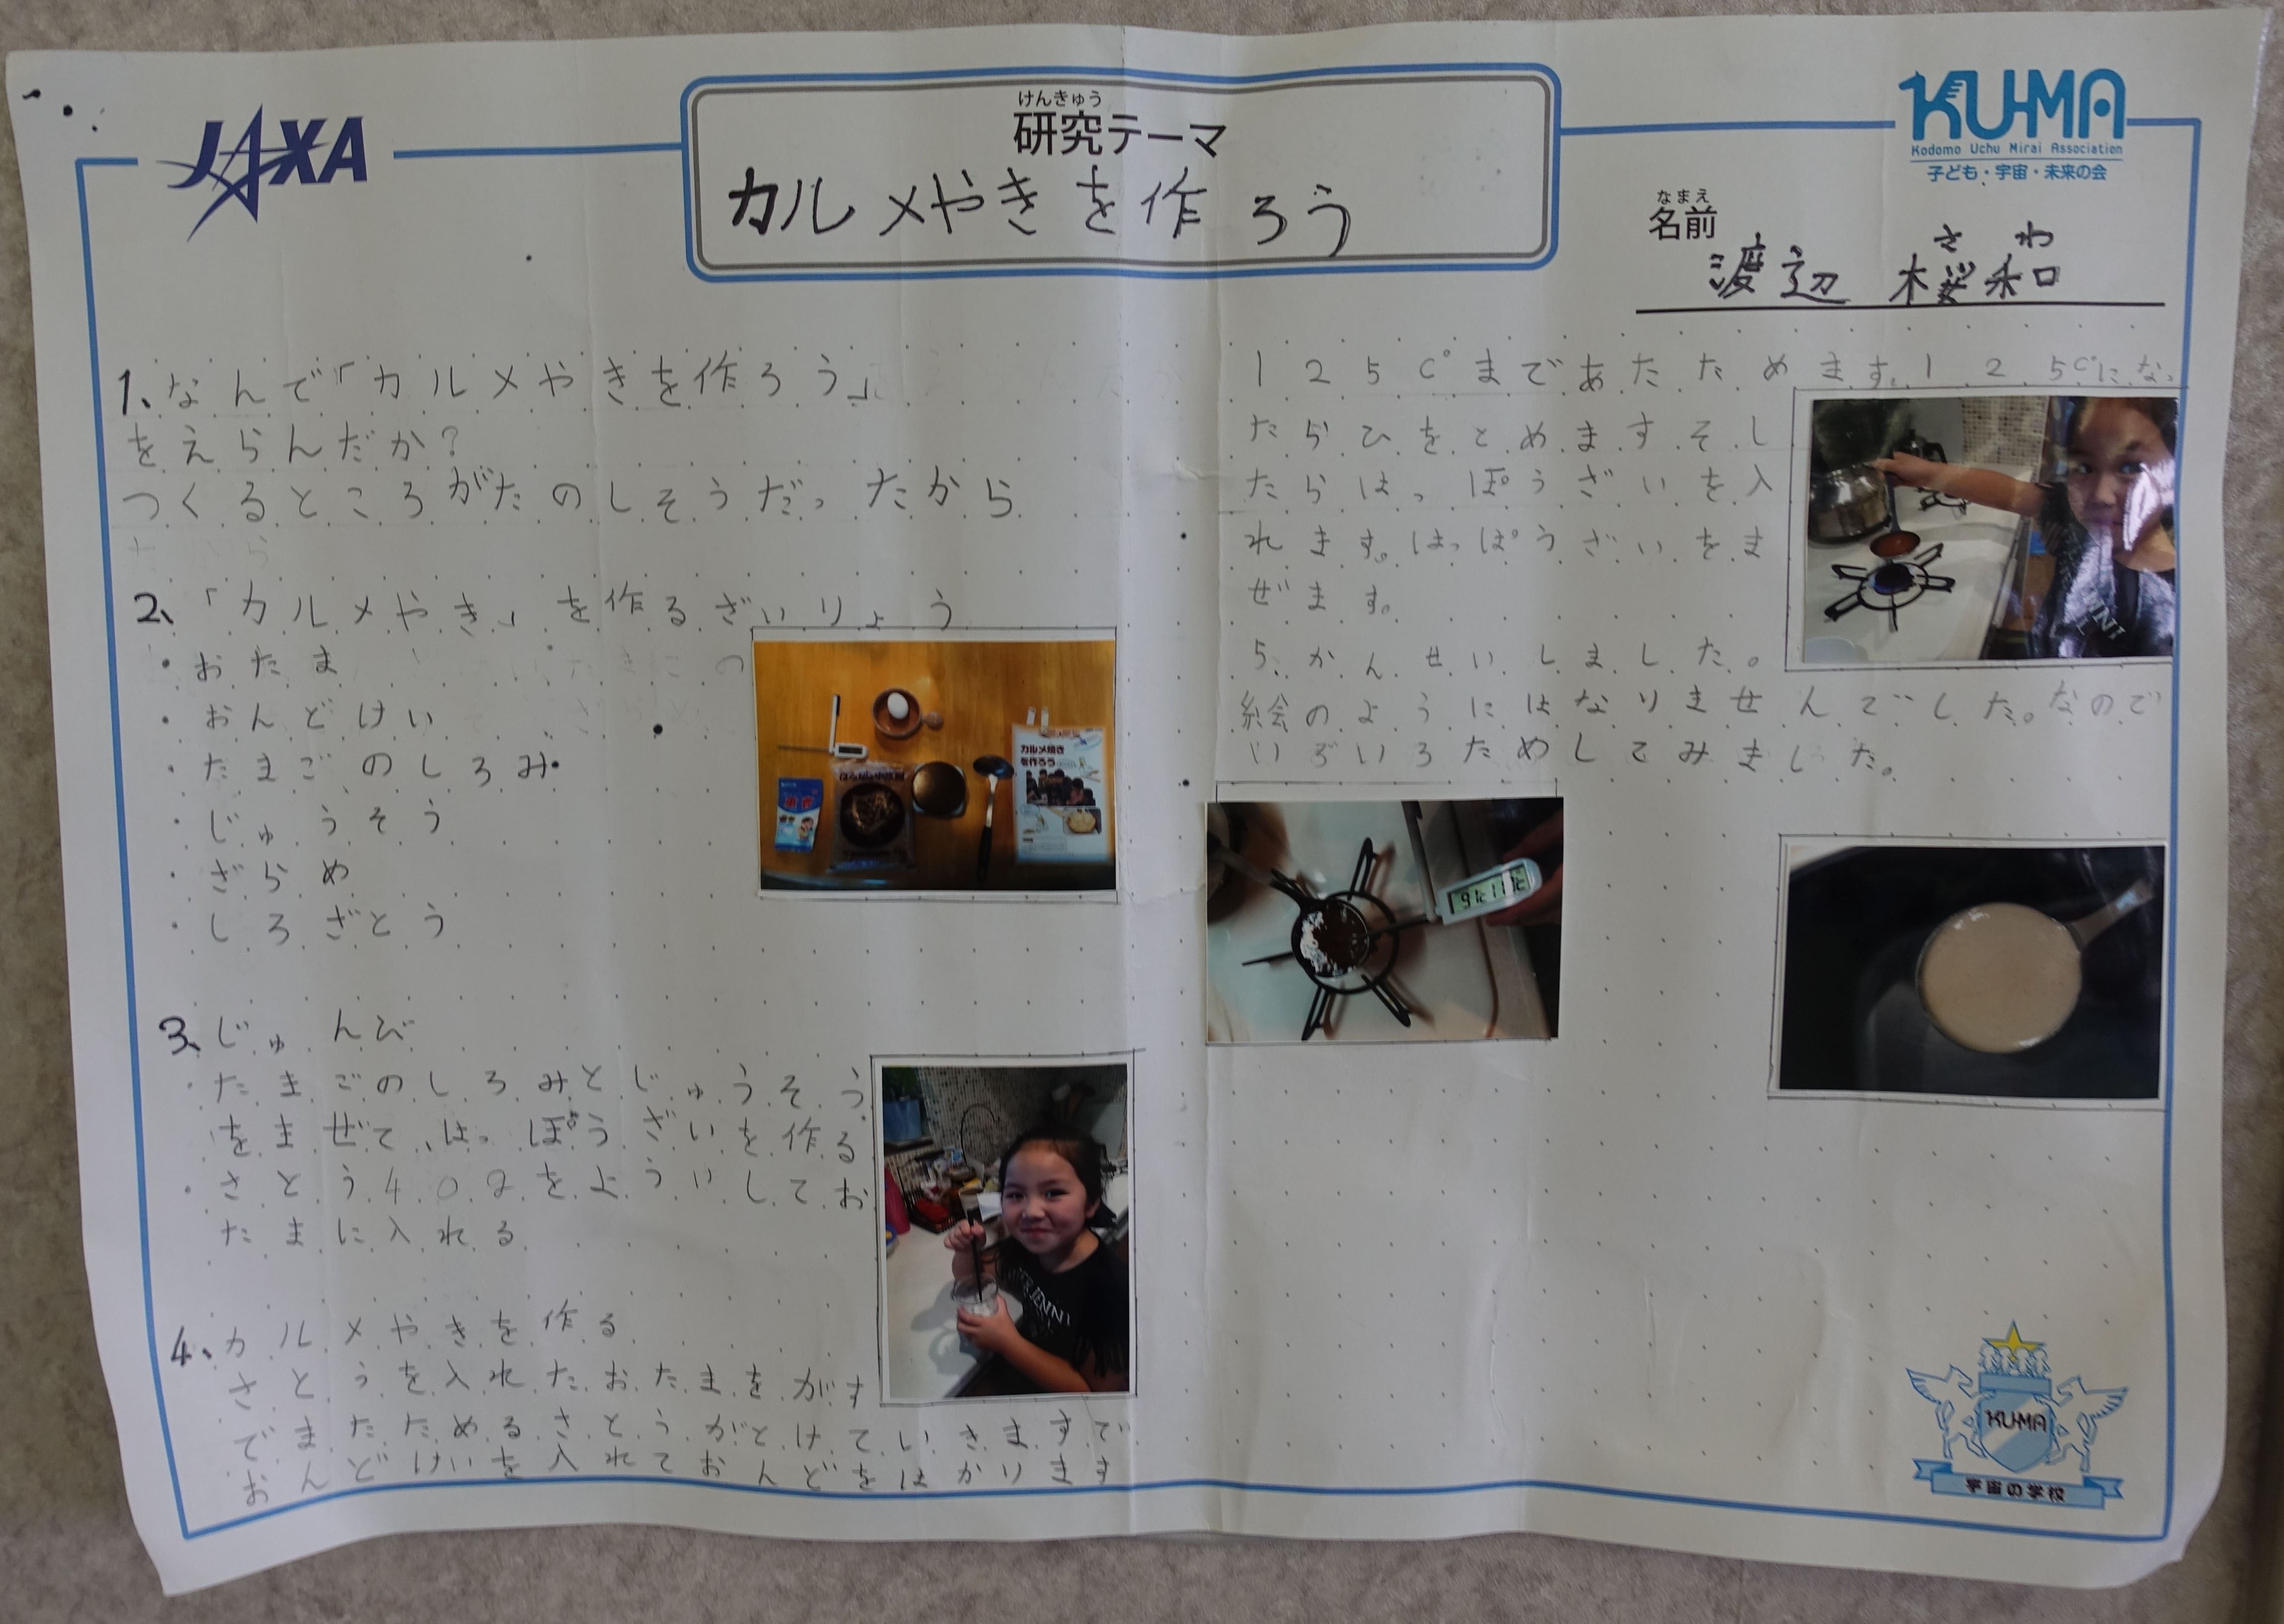 JAXA
けんきゅう
研究テーマ
カルメやきを作ろう
KU-MA
Kodomo Uchu Mirai Association
子ども・宇宙・未来の会
なまえ
名前
さわ
渡辺 桜和
1、なんで「カルメやきを作ろう」
をえらんだか?
つくるところがたのしそうだったから
2、「カルメやき」を作るざいりょう
・おたま
・おんどけい
・たまごのしろみ
・じゅうそう
・ざらめ
・しろざとう
カルメ焼き
を作ろう
3、じゅんび
・たまごのしろみとじゅうそう
をまぜて、はっぽうざいを作る
・さとう40gをよういしてお
たまに入れる
4、カルメやきを作る
さとうを入れたおたまをがす
でまたためるさとうがとけていきますで
おんどけいを入れておんどをはかります
125C°まであたためます。125C°になっ
たらひをとめますそし
たらはっぽうざいを入
れます。はっぽうざいをま
ぜます。
5、かんせいしました。
絵のようにはなりませんでした。なので
いろいろためしてみました。
KU-MA
宇宙の学校